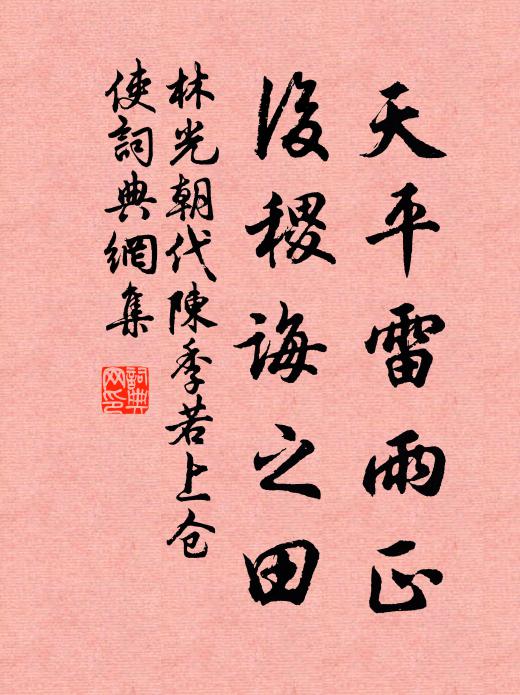 天平雷雨正
後稷誨之田
林光朝代陳季若上仓
使詞典網集
詞典
网印